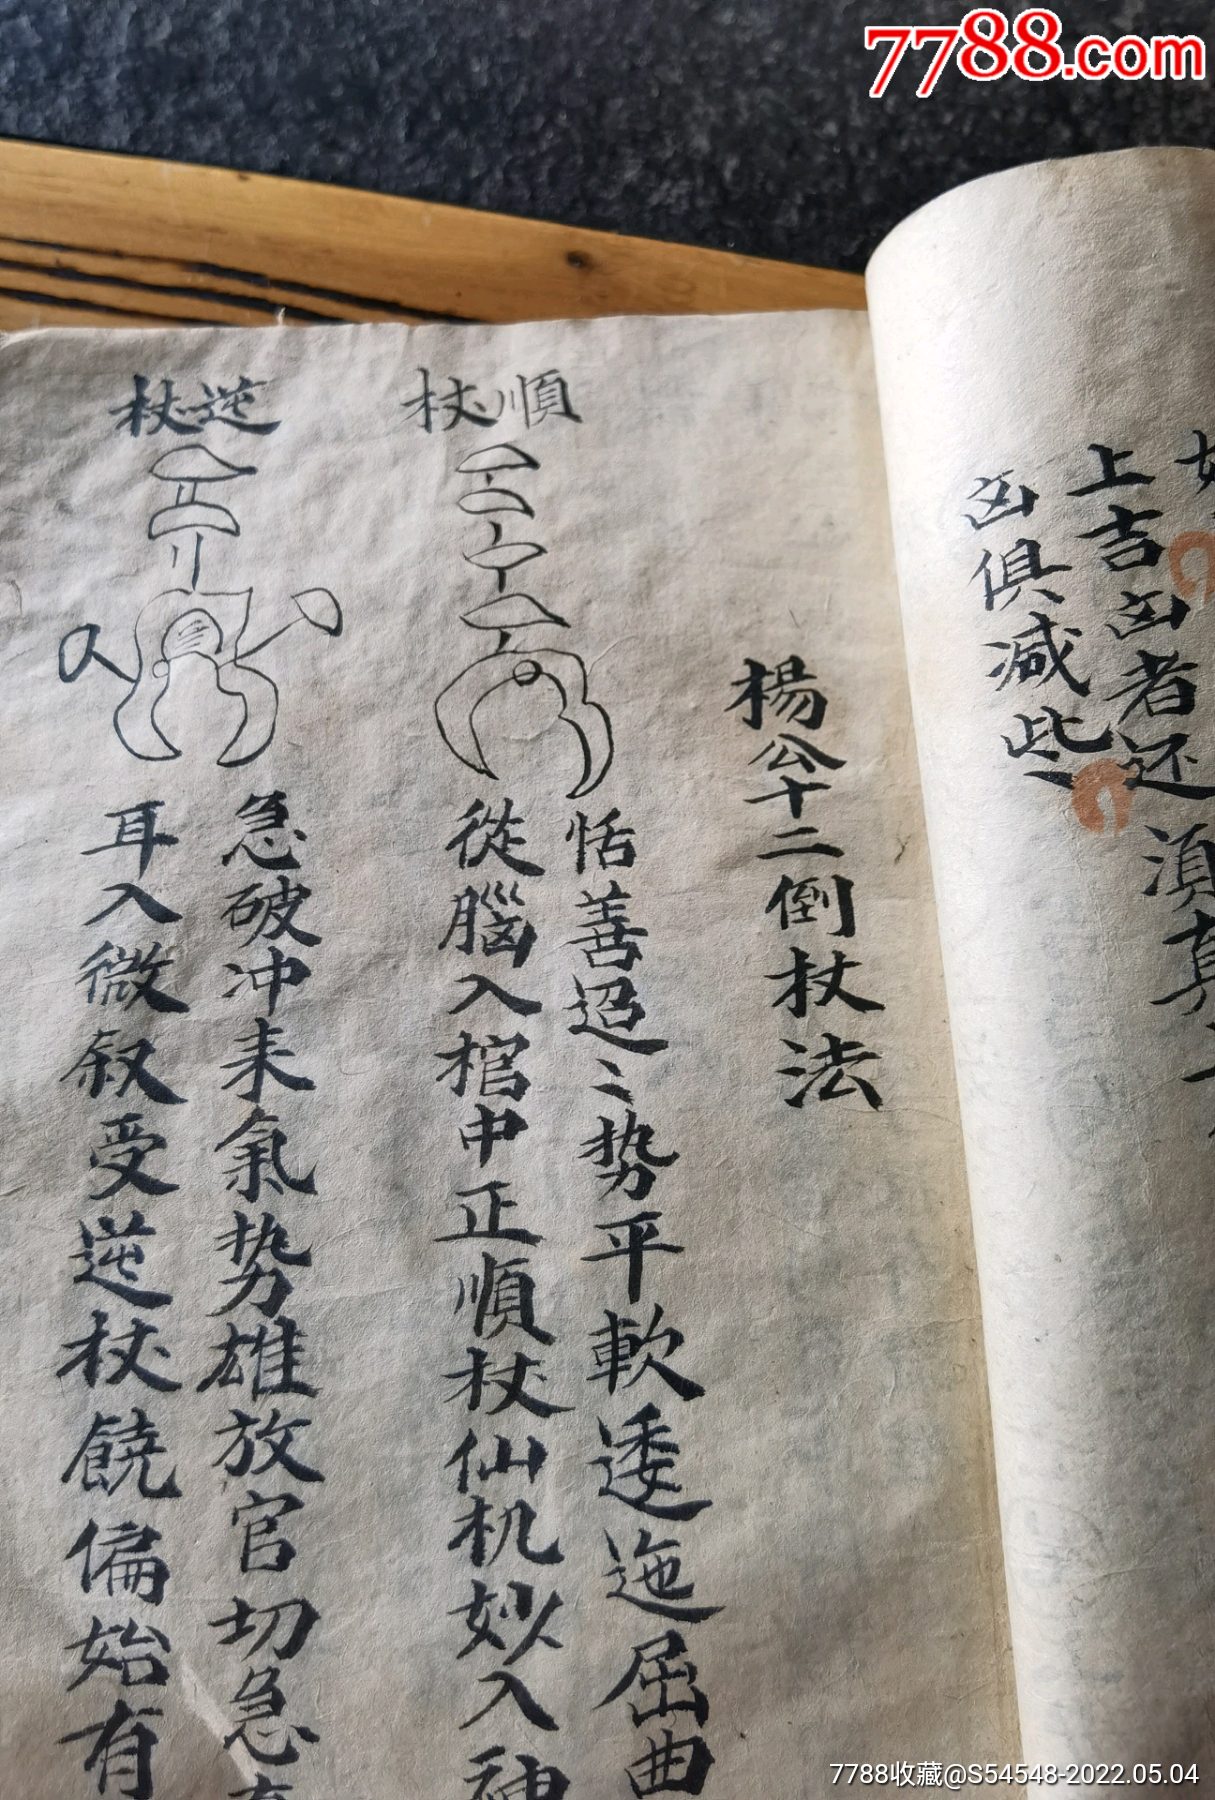 7788.com
上吉凶者还
凶俱减些
楊公十二倒杖法
順杖
恬善迢〻势平軟逶迤屈曲
從腦入棺中正順杖仙机妙入神
逆杖
急破冲来氣势雄放官切急
耳入微叙受逆杖饒偏始有
7788收藏@S54548-2022.05.04